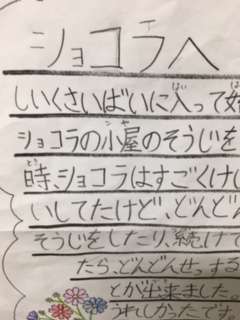 ショコラへ
しいくさいばいに入って
ばい
ショコラの小屋のそうじを
ごや
時、ショコラはすごくけい
いしてたけど、どんどん
そうじをしたり、続けて
たら、どんどんせっする
とが出来ました。
うれしかったです。